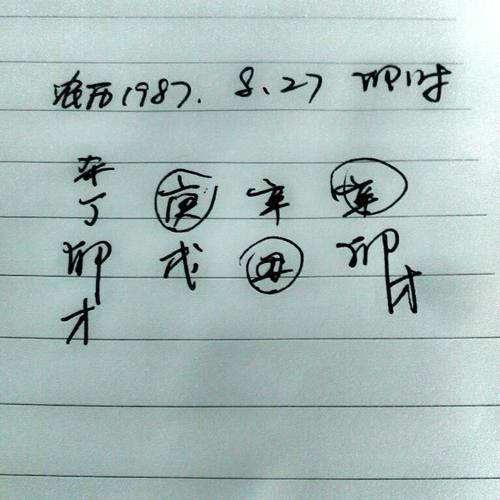 农历1987. 8.27 卯时
杀
丁 庚 辛
卯 戌 丑 卯
才 才